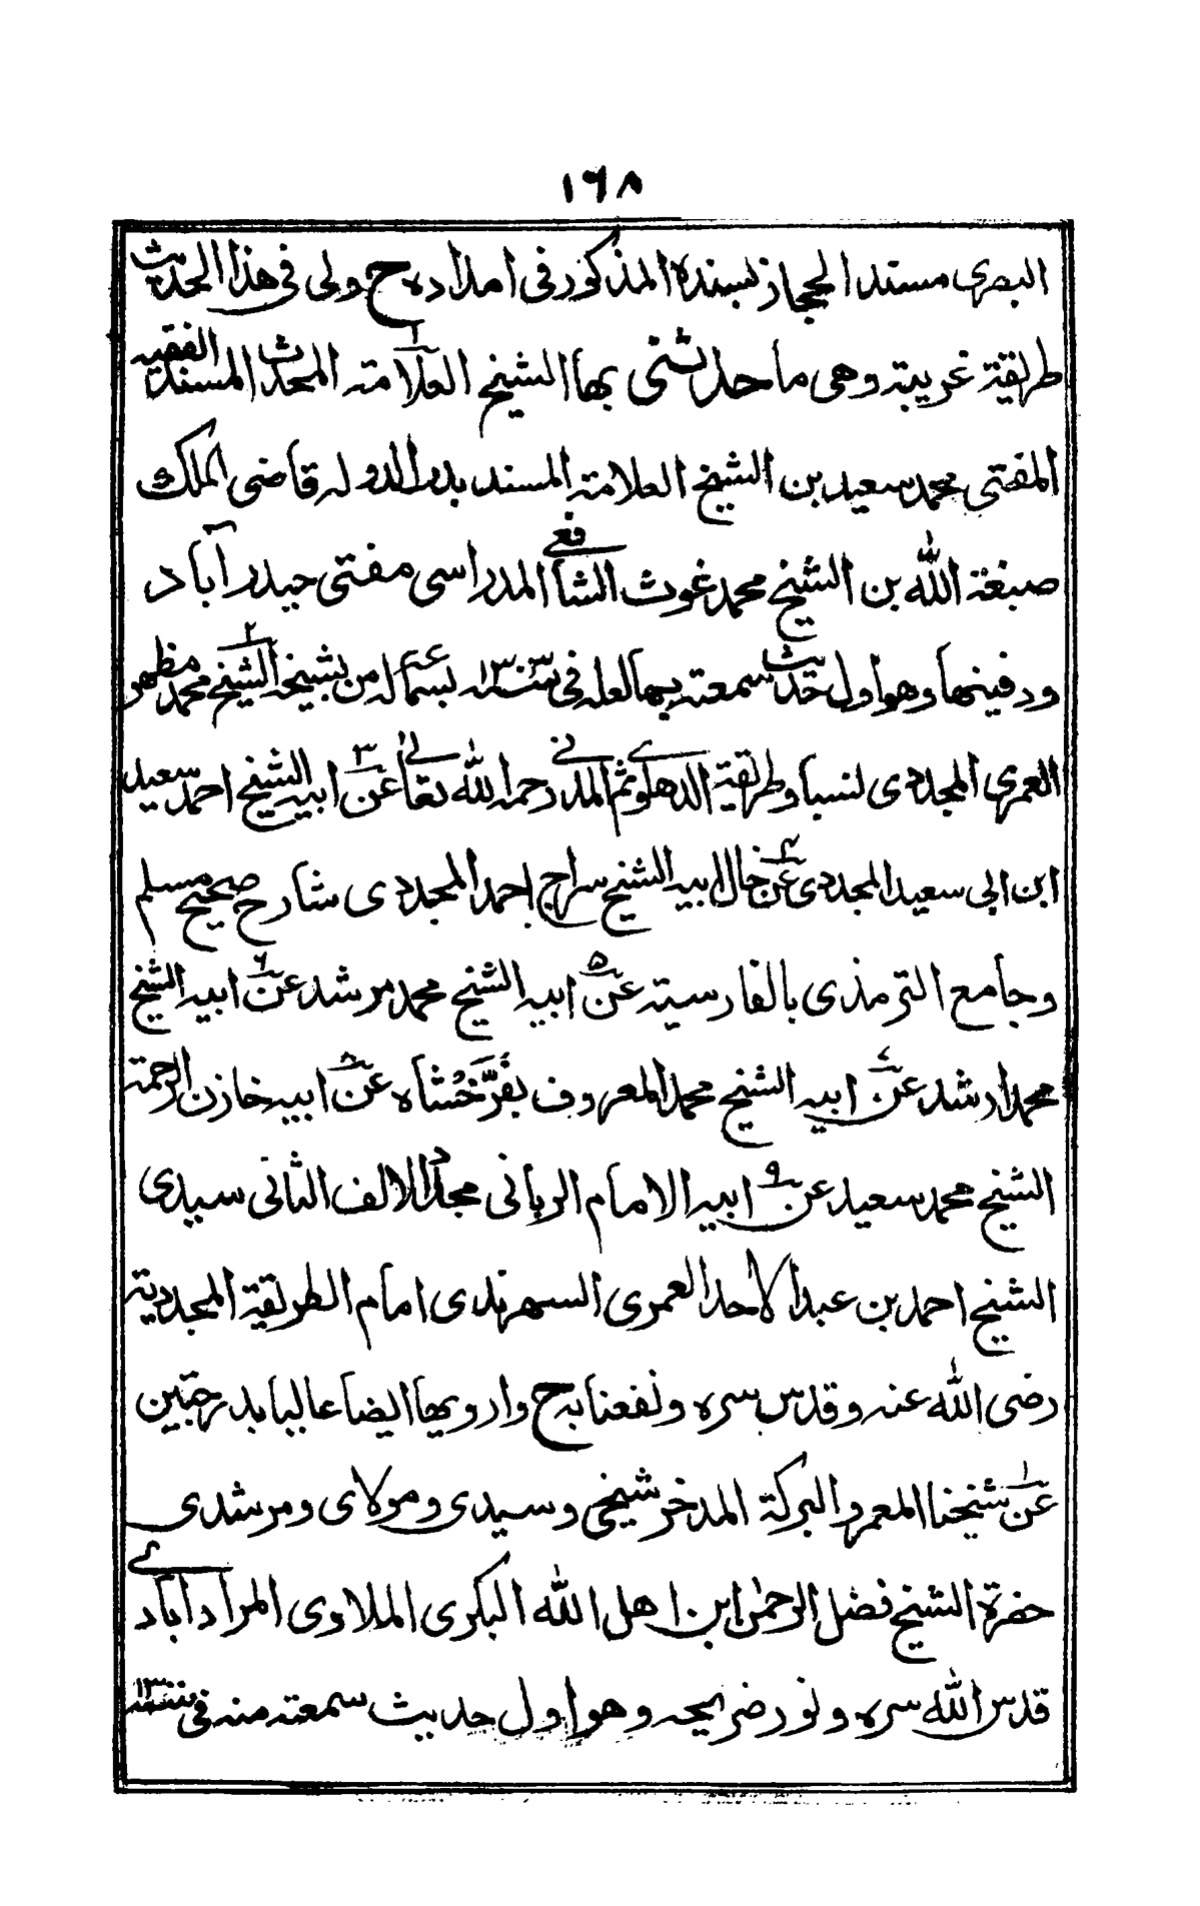 ١٦٨
البصري مسند الحجاز بسنده المذكور في امداده ح ولي في هذا الحديث
طريقة غريبة وهي ما حدثني بها الشيخ العلامة المحدث المسند الفقيه
المفتي محمد سعيد بن الشيخ العلامة المسند بدر الدوله قاضي الملك
صبغة الله بن الشيخ محمد غوث الشافعي المدراسي مفتي حيدرآباد
ودفينها وهو اول حديث سمعته بها لعله في سماعه من شيخه الشيخ محمد مظهر
العمري المجددي نسبا وطريقة الدهلوي ثم المدني رحمه الله تعالى عن ابيه الشيخ احمد سعيد
ابن ابي سعيد المجددي عن خال ابيه الشيخ سراج احمد المجددي شارح صحيح مسلم
وجامع الترمذي بالفارسية عن ابيه الشيخ محمد مرشد عن ابيه الشيخ
محمد ارشد عن ابيه الشيخ محمد المعروف بفَرَّخْشاه عن ابيه خازن الرحمة
الشيخ محمد سعيد عن ابيه الامام الرباني مجدد الالف الثاني سيدي
الشيخ احمد بن عبد الاحد العمري السهرندي امام الطريقة المجددية
رضي الله عنه وقدس سره ونفعنا به ح وارويها ايضا عاليا بدرجتين
عن شيخنا المعمر والبركة المدخر شيخي وسيدي ومولاي ومرشدي
حضرة الشيخ فضل الرحمن ابن اهل الله البكري الملاوي المرادآبادي
قدس الله سره ونور ضريحه وهو اول حديث سمعته منه في